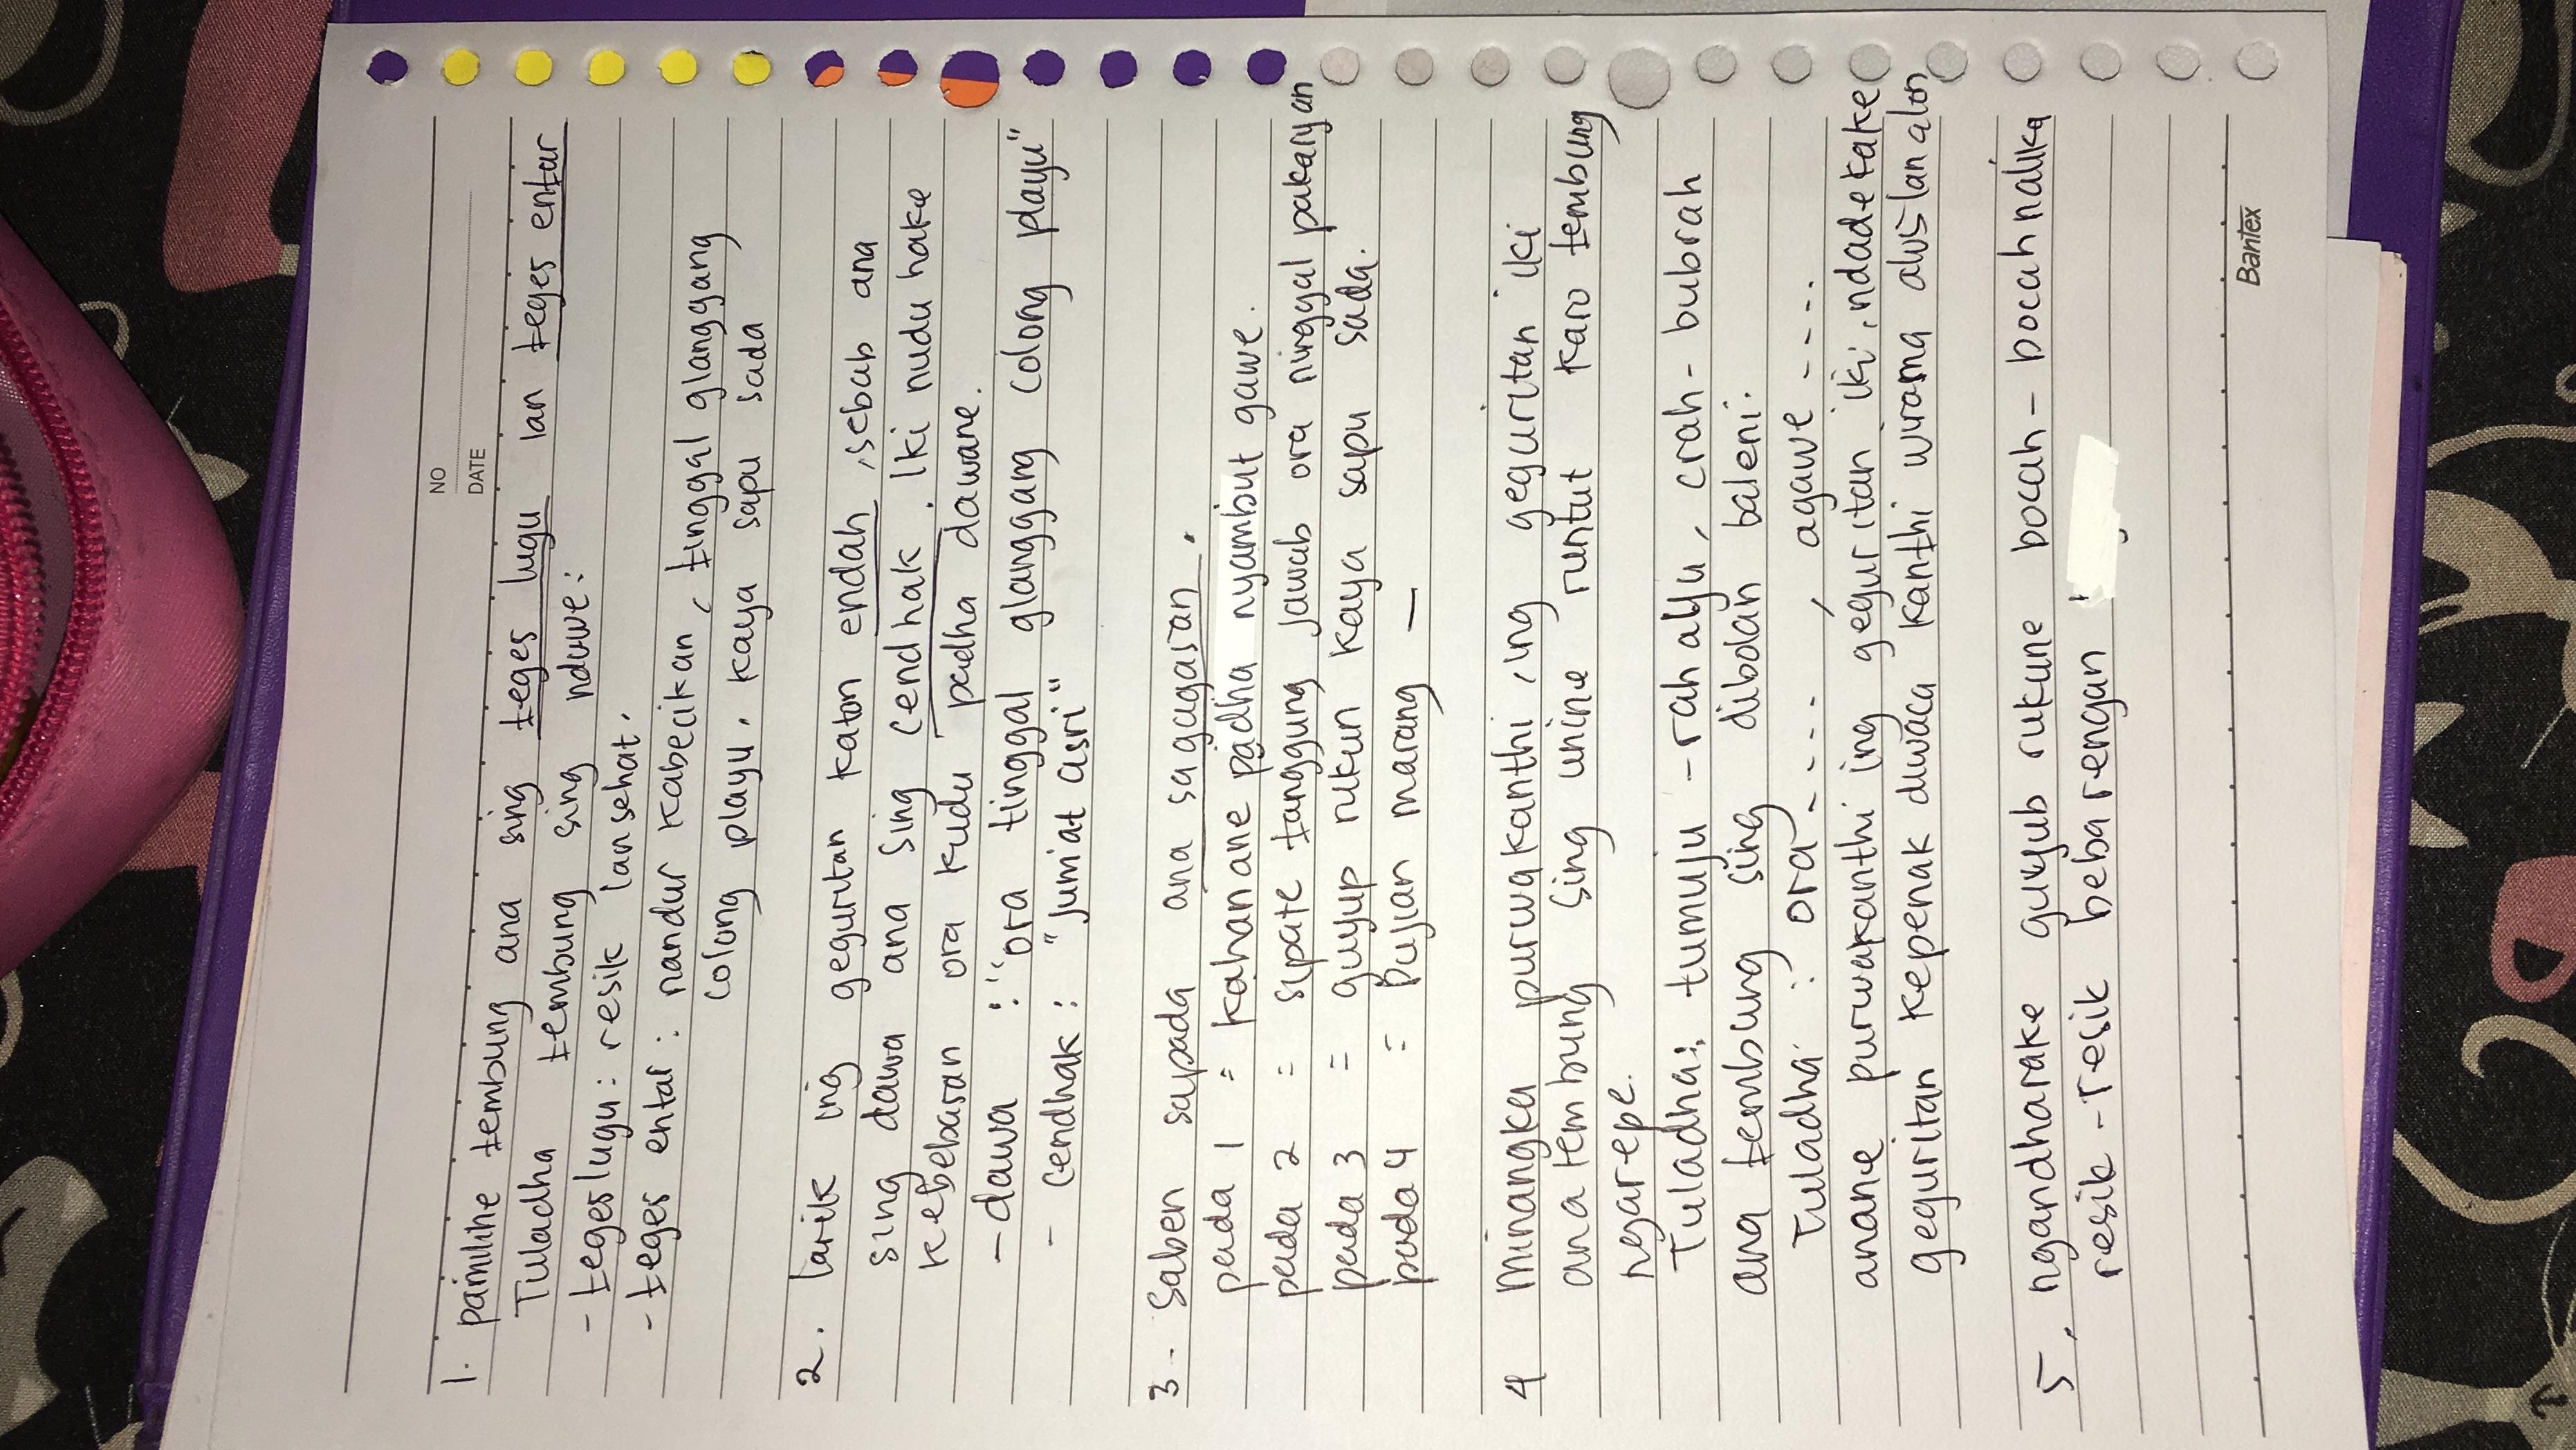 NO
DATE
1. pamilihe tembung ana sing teges lugu lan teges entar
Tuladha tembung sing nduwe:
- teges lugu: resik lan sehat.
- teges entar: nandur kabecikan, tinggal glanggang
colong playu, kaya sapu sada
2. larik ing gegurutan katon endah, sebab ana
sing dawa ana sing cendhak. Iki nuduhake
kebebasan ora kudu padha dawane.
- dawa : "ora tinggal glanggang colong playu"
- cendhak : "jumat asri"
3. Saben sapada ana sagagasan.
pada 1 = kahanane padha nyambut gawe.
pada 2 = sipate tanggung jawab ora ninggal pakaryan
pada 3 = guyup rukun kaya sapu sada.
pada 4 = pujian marang —
4 minangka purwakanthi, ing geguritan iki
ana tembung sing unine runtut karo tembung
ngarepe.
Tuladha: tumuju - rahayu, crah - bubrah
ana tembung sing dibolan baleni.
Tuladha : ora - - - - , agawe - - - -
anane purwakanthi ing geguritan iki, ndadekake
geguritan kepenak diwaca kanthi wirama alus lan alon
5. ngandharake guyub rukune bocah - bocah nalika
resik - resik bebarengan
Bantex